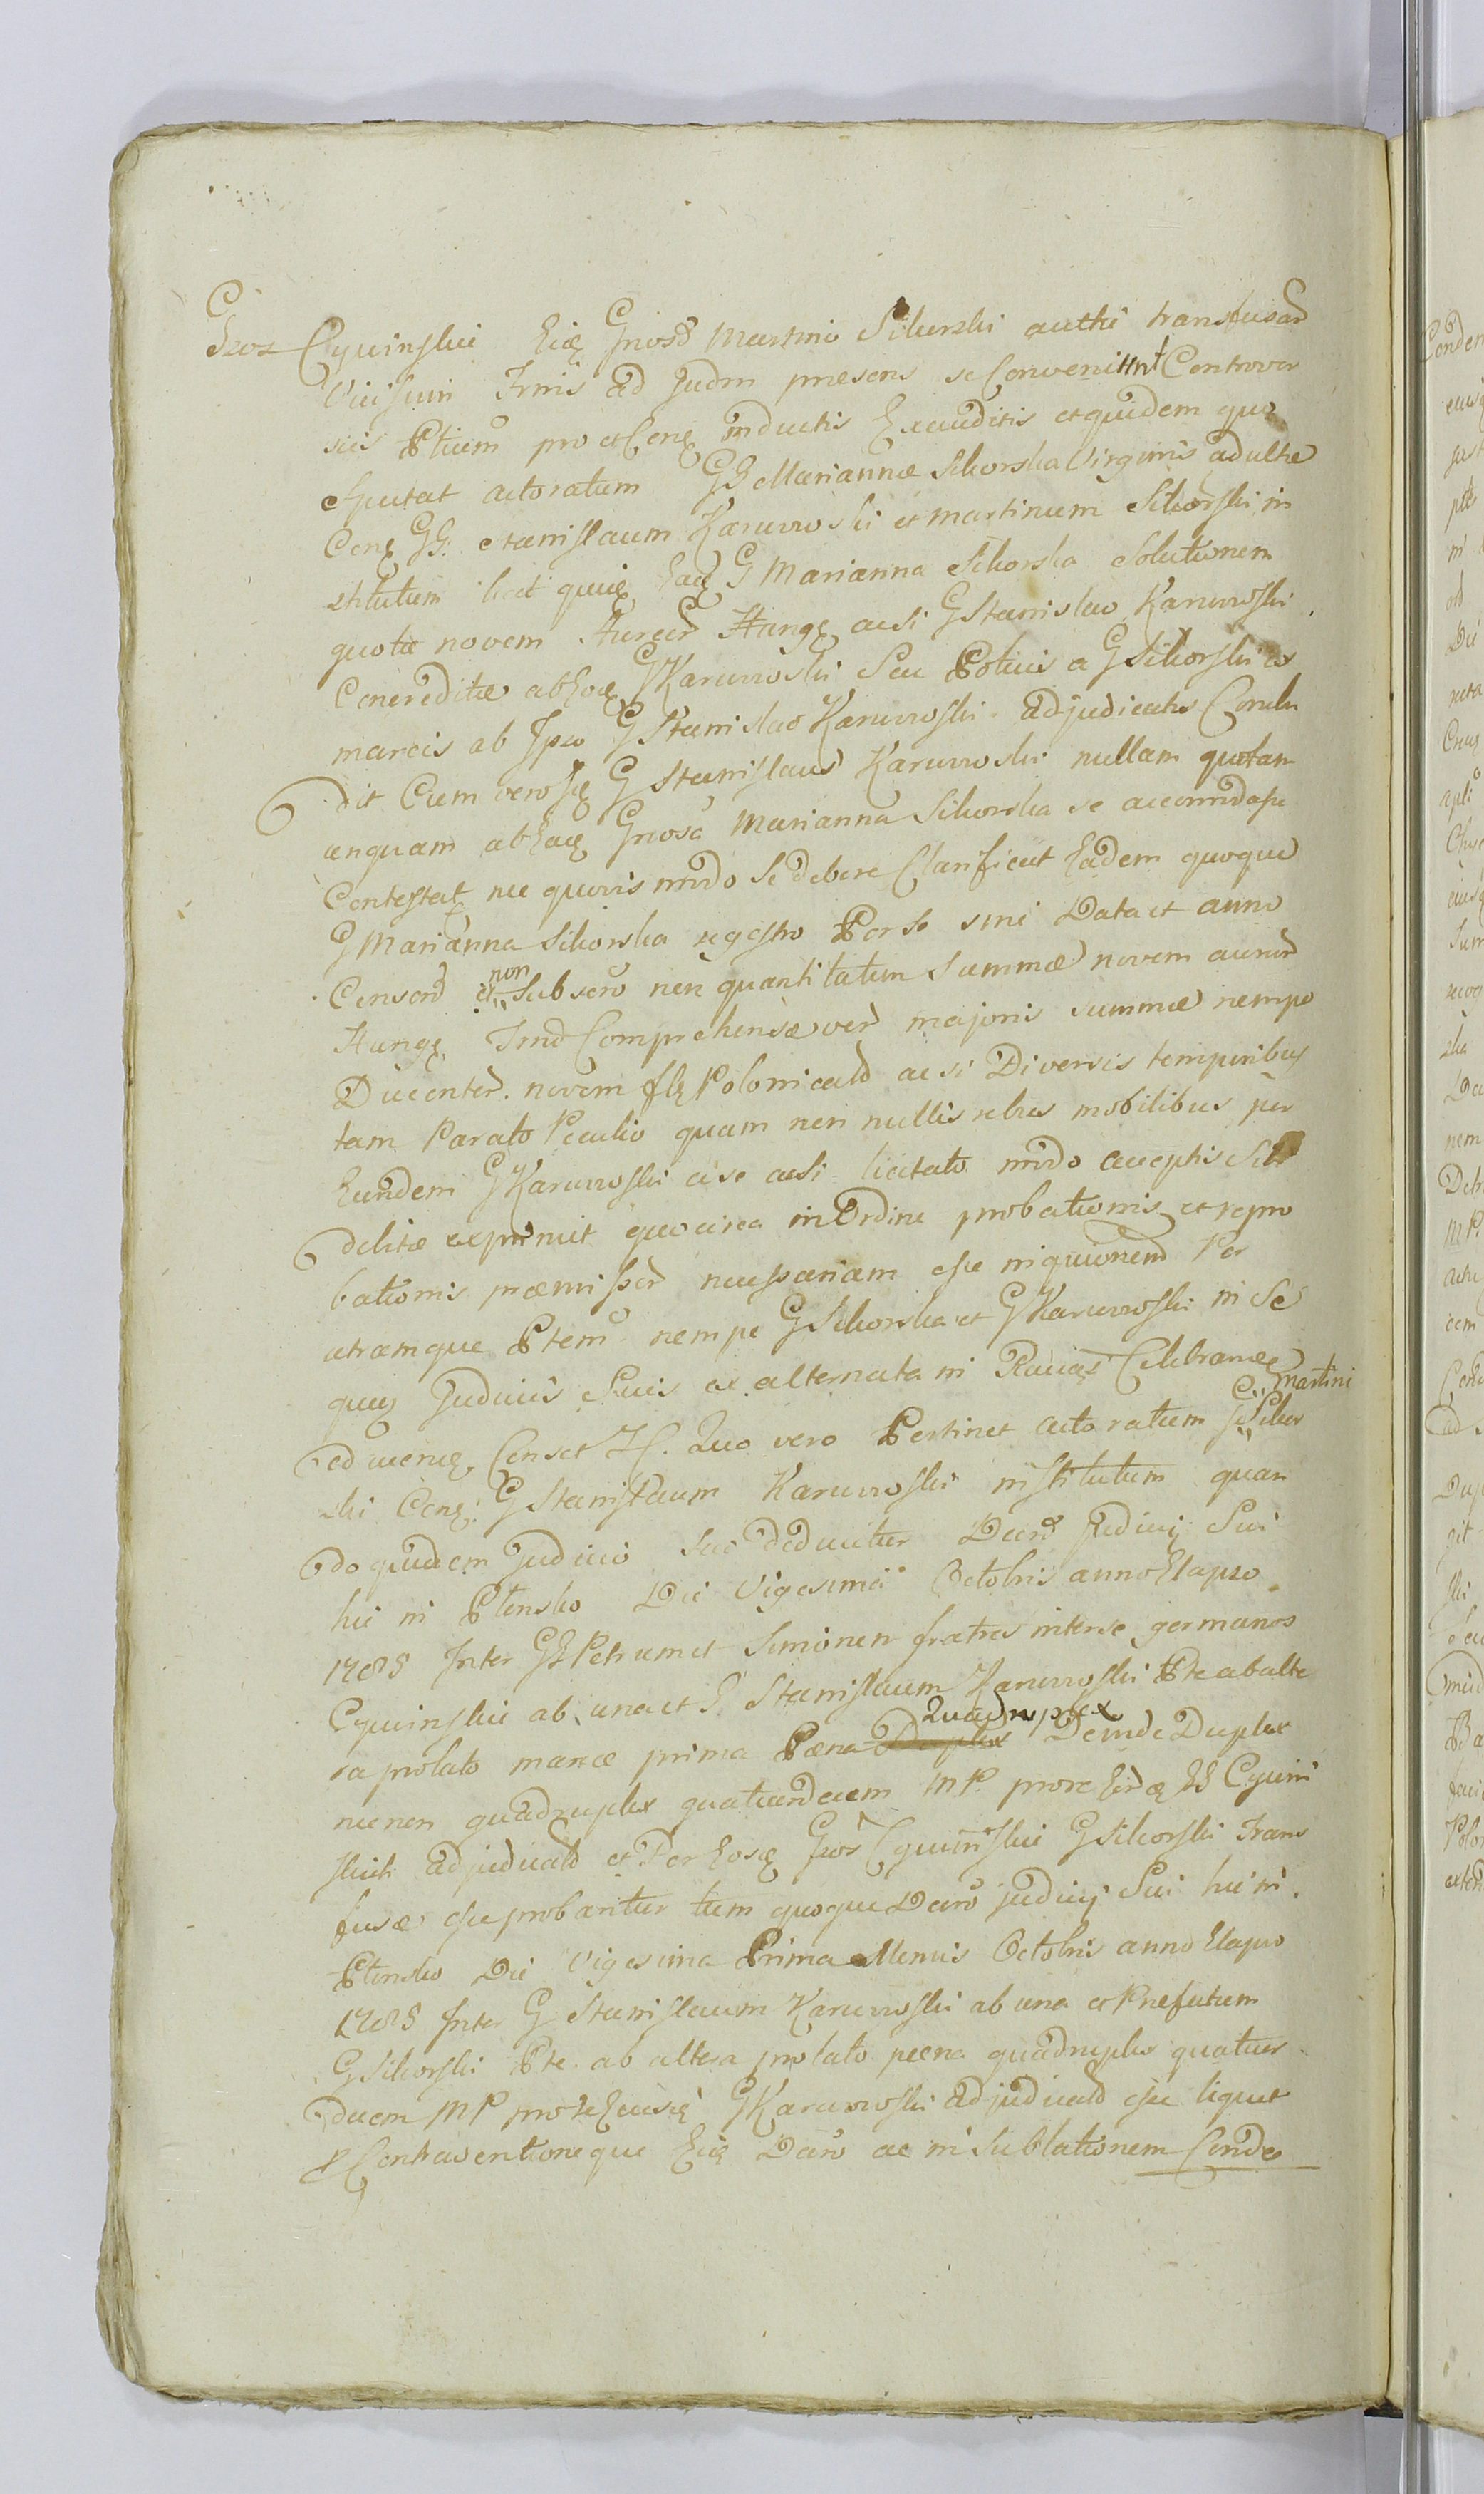 Gros Cywinskie Eidę Gnoso Martino Sikorski authi transfusar
Vicissim Irmis ad Judm praesens se Convenitnt Controver
sus Ptium pro et Cong inductis Exauditis et quidem quo
spectat actoratum GG Mariannae Sikorska Virginis adultae
Cong GG. Stanislaum Karwowski et Martinum Sikorski in
stitutum licet quię Eaę G Marianna Sikorska Solutionem
quotae novem Aureor Hungę acsi G Stanislao Karwowski
Concreditae ab Eoę G Karwowski Seu Potius a G Sikorski ex
marcis ab Ipso G Stanislao Karwowski adjudicatis Conclu
dit Cum vero Isę G Stanislaus Karwowski nullam quotam
unquam ab Eaę Gnosa Marianna Sikorska se accomodasse
Contestat nec quovis modo Se debere Clarificat Eadem quoque
G Marianna Sikorska regestro Per Se sine Data et anno
Conserd et non Subscro non quantitatem Summae novem aureor
Hungę Imo Comprehensae ver majoris summae nempe
Ducentor. novem flę Polonicald acsi Diversis temporibus
tam Parato Peculio quam non nullis rebus mobilibus per
Eundem G Karwowski a se acsi licitato modo acceptis Sibi
debitae exprimit quocirca in Ordine probationis et repro
bationis praemissor necessariam esse inquionem Per
utramque Ptem nempe G Sikorska et G Karwowski in Se
quę Judiciis Suis ex alternata in Raciąż Celebrandę
educendę Censet If. Quo vero Pertinet actoratum G Martini Sikor
ski Cong: G Stanislaum Karwowski institutum quan
do quidem Judicio Suo Deducitur Decro Judicij Sui
hic in Plonsko Die Vigesima Octobris anno Elapso
1785 Inter GG Petrum et Simonem fratres inter se germanos
Cywinskie ab una et G. Stanislaum Karwowski Pte ab alte
ra prolato marcae prima Paena Duplex Quadruplex Deinde Duplex
nec non quadruplex quatuordecem MP. pro re Eordę GG Cywin
skich adjudicald et Per Eosę Gros Cywinskie G Sikorski Trans
fusae esse probantur tum quoque Decro judicij Sui hic in
Plonsko Die Vigesima Prima Mensis Octobris anno Elapso
1785 Inter G Stanislaum Karwowski ab una et Praefatum
G Sikorski Pte. ab altera prolato paena quadruplex quatuor
decem MP pro re Eiusdę G Karwowski adjudicald esse liquet
Contraventioneque Eię Decro ac in Sublationem Condes